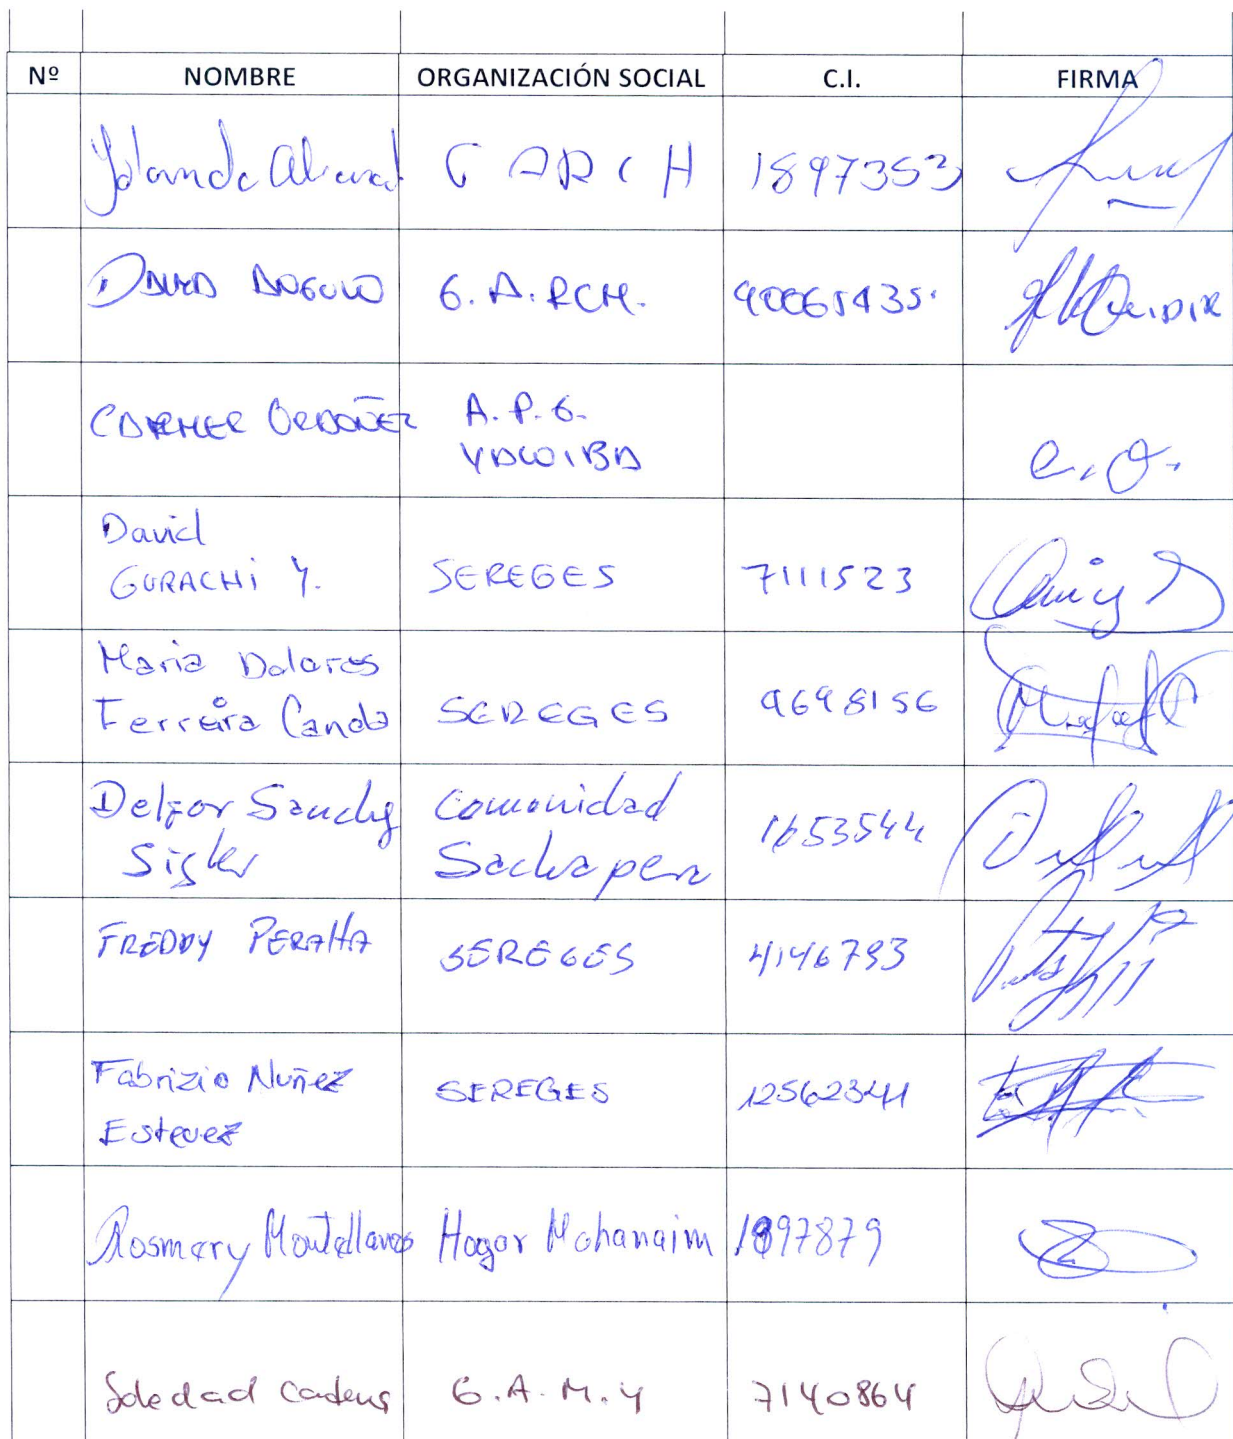 Nº NOMBRE ORGANIZACIÓN SOCIAL C.I. FIRMA
Yolanda G A R C H 1897353
DAVID ANGULO G.A.RCH.
CARMER ORDOÑEZ A.P.G.
YACUIBA
e.O.
David
GURACHi Y. SEREGES 7111523
Maria Dolores
Ferreira Canda SEREGES 9698156
Delfor Sanchez Comunidad 1653544
Sigler Sachapera
FREDDY PERAltA SEREGES 4146793
Fabrizio Nuñez SEREGES 12562341
Estevez
Rosmery Montellanos Hogar Mahanaim 1897879
Soledad G.A.M.Y 7140864